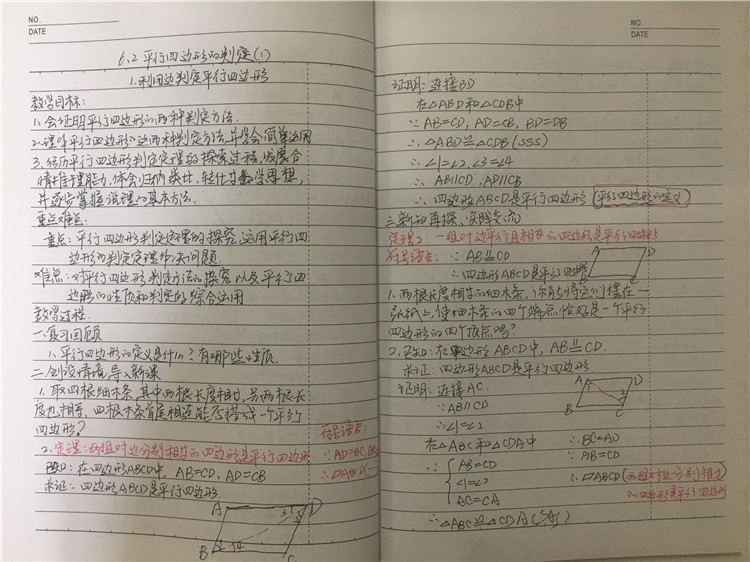 NO
DATE
6.2 平行四边形的判定(1)
1.利用边判定平行四边形
教学目标:
1.会证明平行四边形的两种判定方法.
2.理解平行四边形的这两种判定方法,并学会简单运用
3.经历平行四边形判定定理的探索过程,发展合
情推理能力,体会归纳、类比、转化等数学思想,
并逐步掌握说理的基本方法.
重点难点:
重点:平行四边形判定定理的探究、运用平行四
边形的判定定理解决问题
难点:对平行四边形判定方法的探究以及平行四
边形的性质和判定的综合运用
教学过程:
一.复习回顾
1.平行四边形的定义是什么?有哪些性质.
二.创设情境,导入新课
1.取四根细木条,其中两根长度相等,另两根长
度也相等,四根木条首尾相连能否搭成一个平行
四边形?
2.定理1:两组对边分别相等的四边形是平行四边形
符号语言:
∵AD=BC,
∴▱ABCD
已知:在四边形ABCD中,AB=CD,AD=CB
求证:四边形ABCD是平行四边形.
A D
3
1
2 4
B C
NO.
DATE
证明:连接BD
在△ABD和△CDB中
∵AB=CD,AD=CB,BD=DB
∴△ABD≌△CDB(SSS)
∴∠1=∠2,∠3=∠4
∴AB∥CD,AD∥CB
∴四边形ABCD是平行四边形(平行四边形的定义)
三.新知再探,实际交流
定理2 一组对边平行且相等的四边形是平行四边形
符号语言:∵AB∥=CD
∴四边形ABCD是平行四边形
A D
B C
1.两根长度相等的细木条,你能将它们摆在一
张纸上,使细木条的四个端点恰好是一个平行
四边形的四个顶点吗?
2.已知:在四边形ABCD中,AB∥=CD.
求证:四边形ABCD是平行四边形
证明:连接AC.
A D
B C
∵AB∥CD
∴∠1=∠2
在△ABC和△CDA中
∵ AB=CD
∠1=∠2
AC=CA
∴△ABC≌△CDA(SAS)
∴BC=AD
∵AB=CD
∴▱ABCD(两组对边分别相等
的四边形是平行四边形